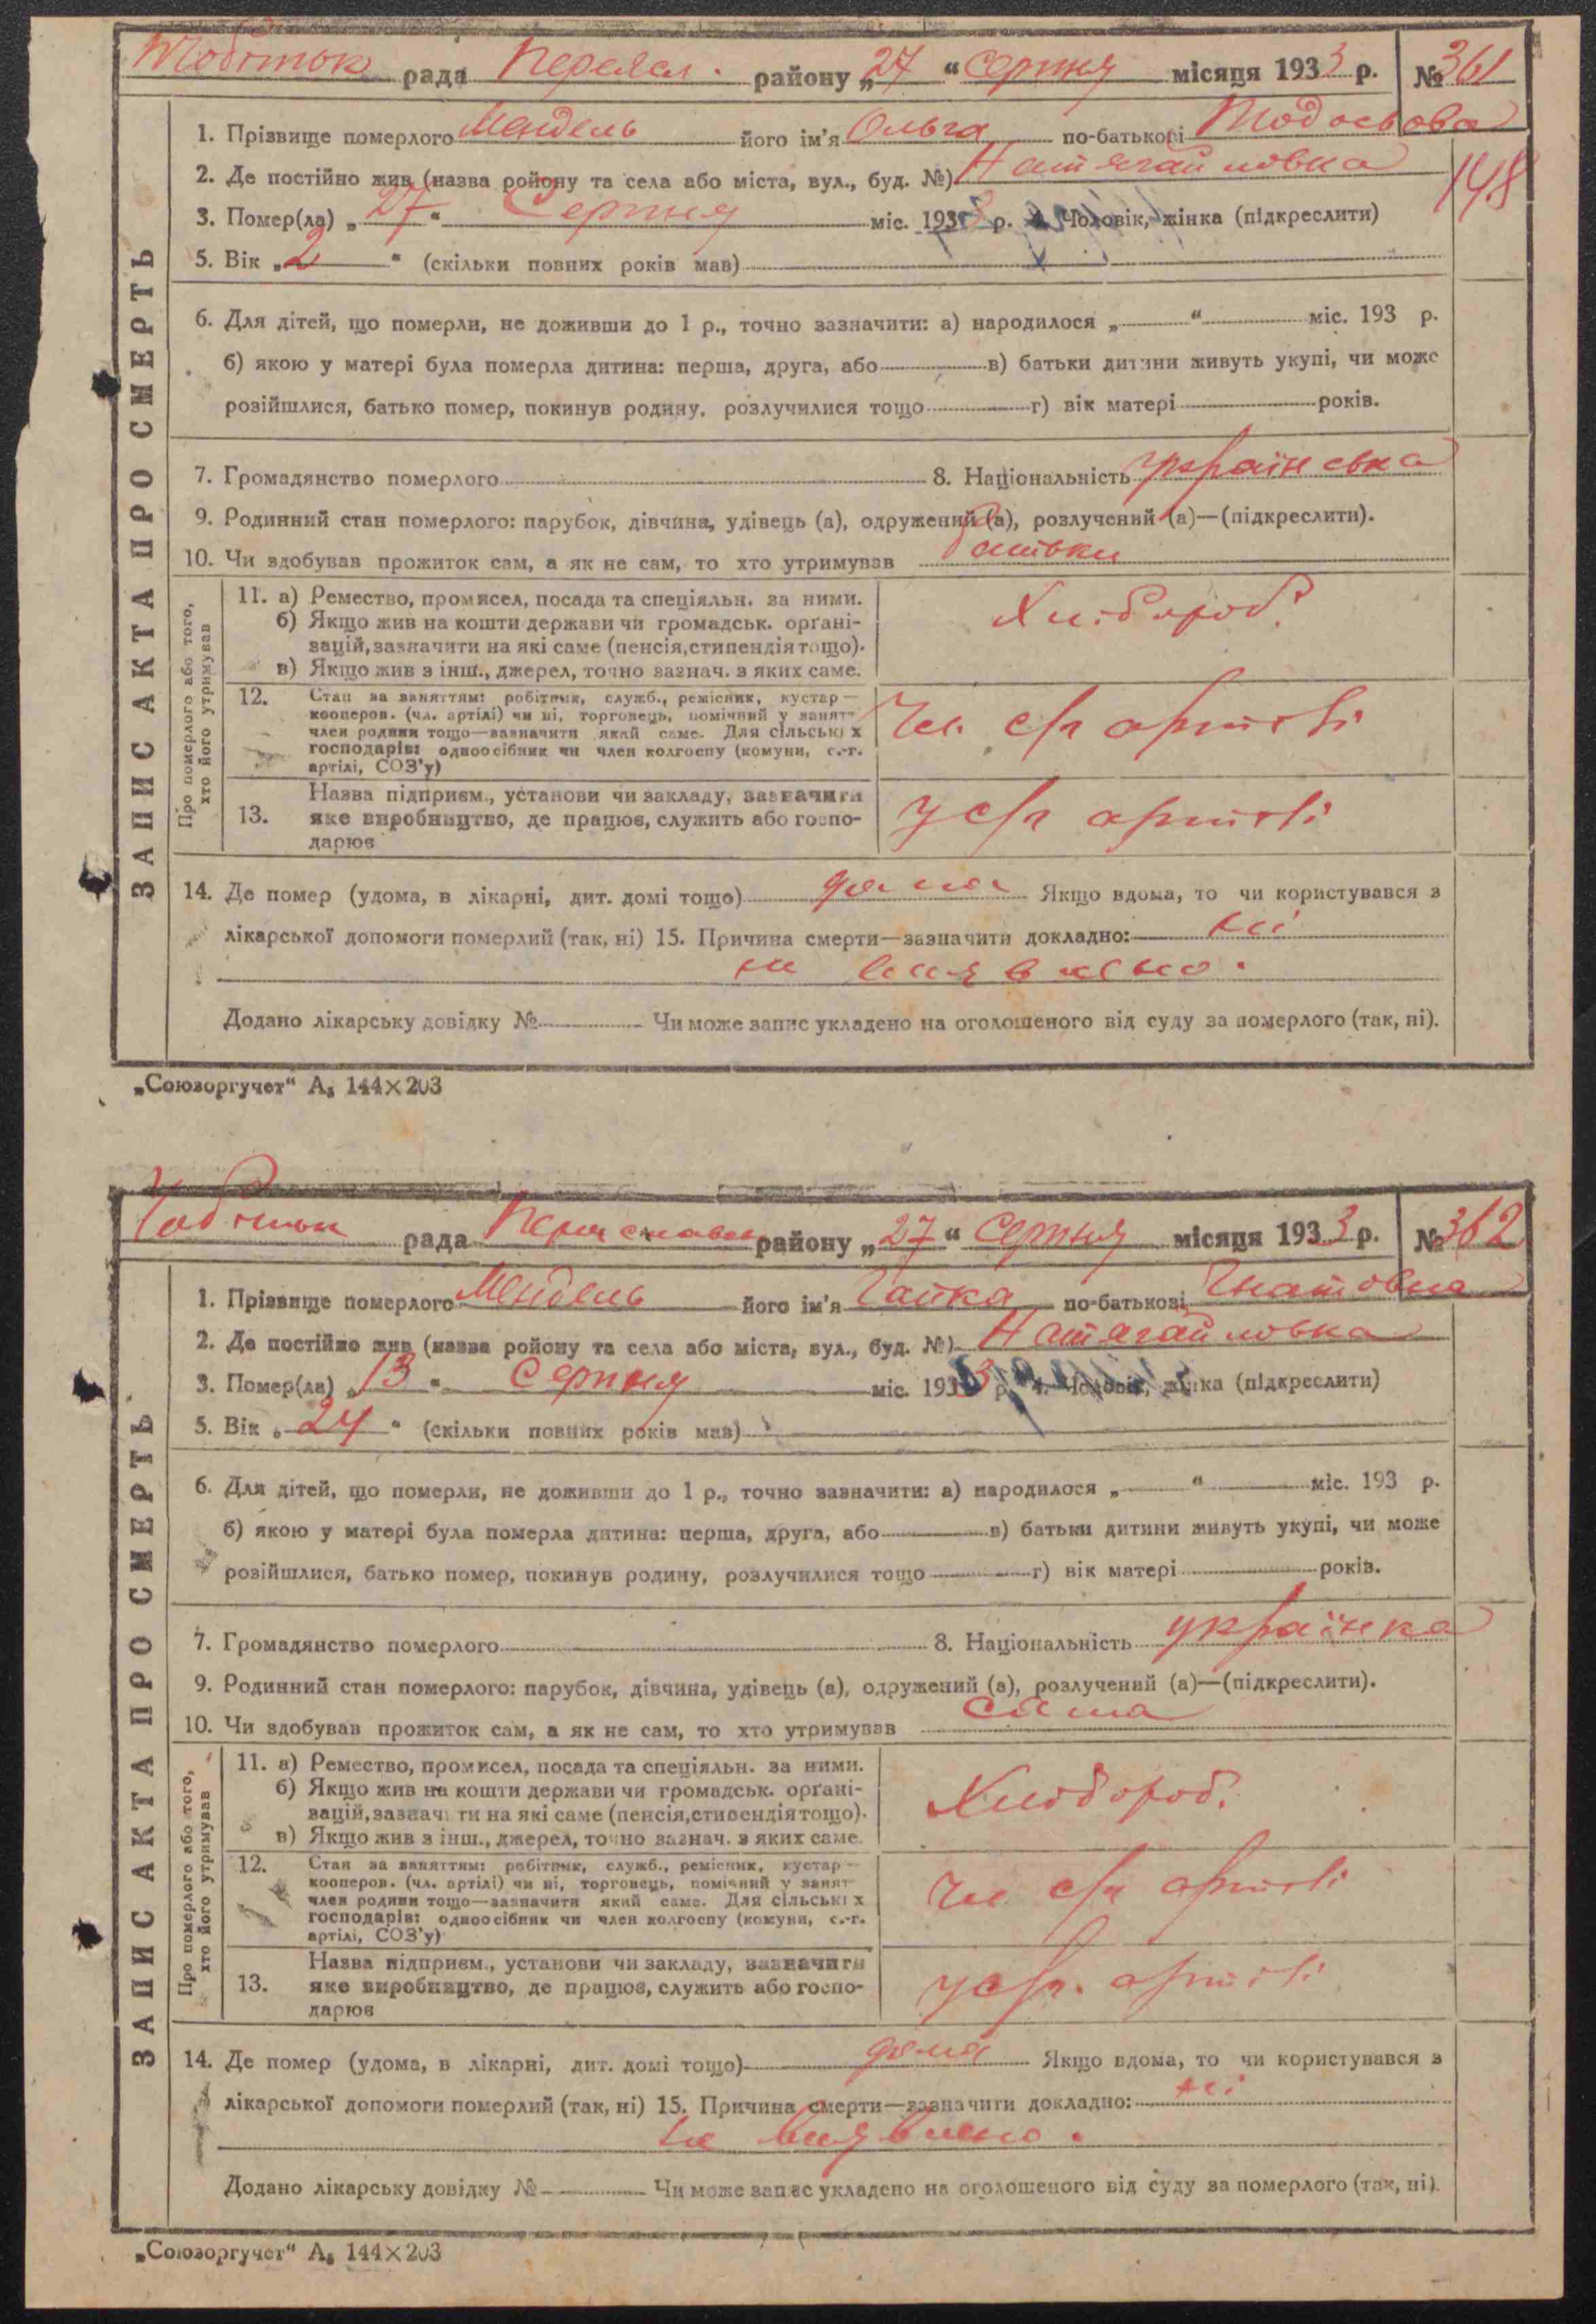 рада Переясл. району „27“ серпня місяця 1933 р. № 361
1. Прізвище померлого Мендель його ім’я Ольга по-батькові Тодосьова
2. Де постійно жив (назва ройону та села або міста, вул., буд. №) Натягайловка
148
3. Помер(ла) „27“ Серпня міс. 1933 р. 4. Чоловік, жінка (підкреслити)
5. Вік „2“ (скільки повних років мав)
6. Для дітей, що померли, не доживши до 1 р., точно зазначити: а) народилося „ “ міс. 193 р.
б) якою у матері була померла дитина: перша, друга, або в) батьки дитини живуть укупі, чи може
розійшлися, батько помер, покинув родину, розлучилися тощо г) вік матері років.
7. Громадянство померлого 8. Національність українська
9. Родинний стан померлого: парубок, дівчина, удівець (а), одружений (а), розлучений (а)—(підкреслити).
10. Чи здобував прожиток сам, а як не сам, то хто утримував батьки
ЗАПИС АКТА ПРО СМЕРТЬ
Про померлого або того, хто його утримував
11. а) Ремество, промисел, посада та спеціяльн. за ними.
б) Якщо жив на кошти держави чи громадськ. орґані-
зацій, зазначити на які саме (пенсія, стипендія тощо).
в) Якщо жив з інш., джерел, точно зазнач. з яких саме.
Хлібороб.
12. Стан за заняттям: робітник, служб., ремісник, кустар —
кооперов. (чл. артілі) чи ні, торговець, помічний у занят
член родини тощо—зазначити який саме. Для сільських
господарів: одноосібник чи член колгоспу (комуни, с.-г.
артілі, СОЗ’у)
Чл. с/г артілі
13. Назва підприєм., установи чи закладу, зазначити
яке виробництво, де працює, служить або госпо-
дарює
У с/г артілі
14. Де помер (удома, в лікарні, дит. домі тощо) дома Якщо вдома, то чи користувався з
лікарської допомоги померлий (так, ні) 15. Причина смерти—зазначити докладно: ні
не виявлено.
Додано лікарську довідку № Чи може запис укладено на оголошеного від суду за померлого (так, ні).
„Союзоргучет“ А₅ 144×203
рада Переяславськ району „27“ Серпня місяця 1933 р. № 362
1. Прізвище померлого Мендель його ім’я Гапка по-батькові Гнатовна
2. Де постійно жив (назва ройону та села або міста, вул., буд. №) Натягайловка
3. Помер(ла) „13“ Серпня міс. 1933 р. 4. Чоловік, жінка (підкреслити)
5. Вік „24“ (скільки повних років мав)
6. Для дітей, що померли, не доживши до 1 р., точно зазначити: а) народилося „ “ міс. 193 р.
б) якою у матері була померла дитина: перша, друга, або в) батьки дитини живуть укупі, чи може
розійшлися, батько помер, покинув родину, розлучилися тощо г) вік матері років.
7. Громадянство померлого 8. Національність українка
9. Родинний стан померлого: парубок, дівчина, удівець (а), одружений (а), розлучений (а)—(підкреслити).
10. Чи здобував прожиток сам, а як не сам, то хто утримував сама
ЗАПИС АКТА ПРО СМЕРТЬ
Про померлого або того, хто його утримував
11. а) Ремество, промисел, посада та спеціяльн. за ними.
б) Якщо жив на кошти держави чи громадськ. орґані-
зацій, зазначити на які саме (пенсія, стипендія тощо).
в) Якщо жив з інш., джерел, точно зазнач. з яких саме.
Хлібороб.
12. Стан за заняттям: робітник, служб., ремісник, кустар —
кооперов. (чл. артілі) чи ні, торговець, помічний у занят
член родини тощо—зазначити який саме. Для сільських
господарів: одноосібник чи член колгоспу (комуни, с.-г.
артілі, СОЗ’у)
Чл. с/г артілі
13. Назва підприєм., установи чи закладу, зазначити
яке виробництво, де працює, служить або госпо-
дарює
у с/г. артілі
14. Де помер (удома, в лікарні, дит. домі тощо) дома Якщо вдома, то чи користувався з
лікарської допомоги померлий (так, ні) 15. Причина смерти—зазначити докладно: ні
не виявлено.
Додано лікарську довідку № Чи може запис укладено на оголошеного від суду за померлого (так, ні).
„Союзоргучет“ А₅ 144×203